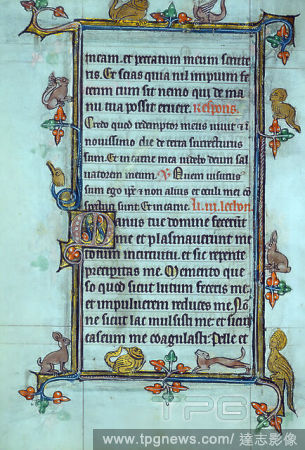 meam. et peccatum meum scrute
ris. Et scias quia nil impium fe
cerim cum sit nemo qui de ma
nu tua possit eruere. Respons.
Credo quod redemptor meus vivit
novissimo die de terra surrecturus
sum. Et in carne mea videbo deum sal
vatorem meum. Quem visurus
sum ego et non alius et oculi mei con
specturi sunt. Et in carne.
Manus tue domine fecerunt
me et plasmaverunt me
totum in circuitu. et sic repente
precipitas me. Memento que
so quod sicut lutum feceris me.
et in pulverem reduces me. No
ne sicut lac mulsisti me. et sicut
caseum me coagulasti. Pelle et
TPG
www.tpgnews.com / 達志影像